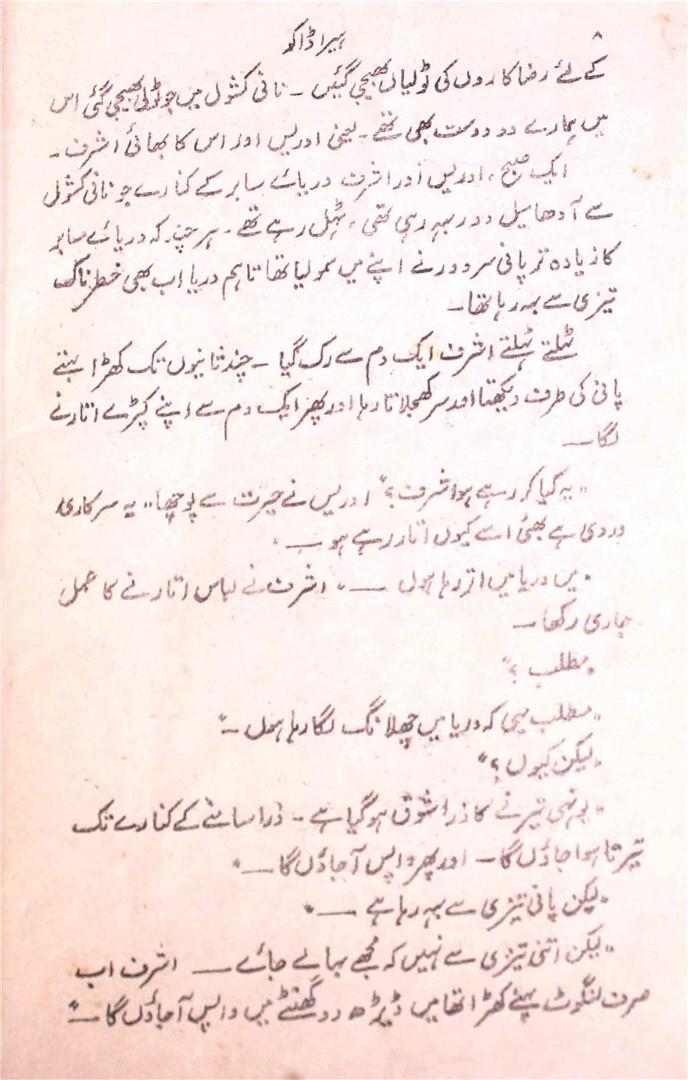 ۸
ہیرا ڈاکو
کے لئے رضا کاروں کی ٹولیاں بھیجی گئیں ۔ نانی کشول میں جو ٹولی بھیجی گئی اس
میں ہمارے دو دوست بھی تھے ۔ یعنی ادریس اور اس کا بھائی اشرف ۔
ایک صبح ، ادریس اور اشرف دریائے سابر کے کنارے جو نانی کشول
سے آدھا میل دور بہہ رہی تھی ، ٹہل رہے تھے ۔ ہر چند کہ دریائے سابر
کا زیادہ تر پانی سرور نے اپنے میں سمو لیا تھا تاہم دریا اب بھی خطرناک
تیزی سے بہہ رہا تھا ۔
ٹہلتے ٹہلتے اشرف ایک دم سے رک گیا ۔ چند ثانیوں تک کھڑا بہتے
پانی کی طرف دیکھتا اور سر کھجلاتا رہا اور پھر ایک دم سے اپنے کپڑے اتارنے
لگا ۔
" یہ کیا کر رہے ہو اشرف ؟ " ادریس نے حیرت سے پوچھا " یہ سرکاری
وردی ہے بھئی اسے کیوں اتار رہے ہو ۔
" میں دریا میں اتر رہا ہوں ۔ " اشرف نے لباس اتارنے کا عمل
جاری رکھا ۔
" مطلب ؟ "
" مطلب یہی کہ دریا میں چھلانگ لگا رہا ہوں ۔ "
" لیکن کیوں ؟ "
" یونہی تیرنے کا ذرا شوق ہو گیا ہے ۔ ذرا سامنے کے کنارے تک
تیرتا ہوا جاؤں گا ۔ اور پھر واپس آ جاؤں گا ۔ "
" لیکن پانی تیزی سے بہہ رہا ہے ۔ "
" لیکن اتنی تیزی سے نہیں کہ مجھے بہا لے جائے ۔ اشرف اب
صرف لنگوٹ پہنے کھڑا تھا میں ڈیڑھ دو گھنٹے میں واپس آ جاؤں گا ۔ "